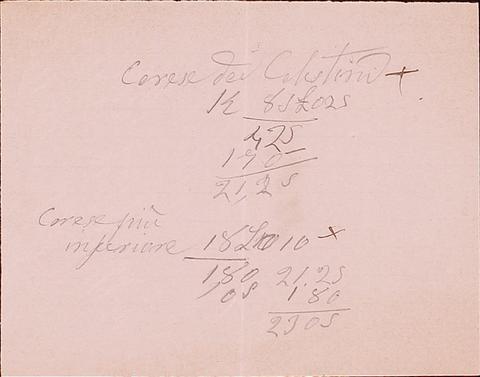 Corese dei Celestini +
K 85 £ 025
4,25
170
21,25
Corese più
inferiore 18 £ 010 ×
180 21.25
05 180
2305